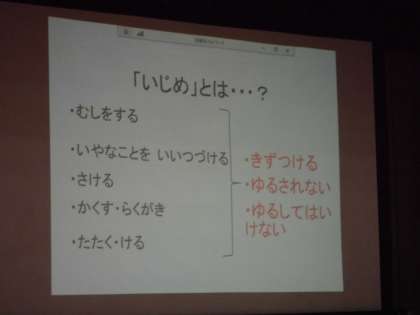 「いじめ」とは・・・？
・むしをする
・いやなことを いいつづける
・さける
・かくす・らくがき
・たたく・ける
・きずつける
・ゆるされない
・ゆるしてはい
けない